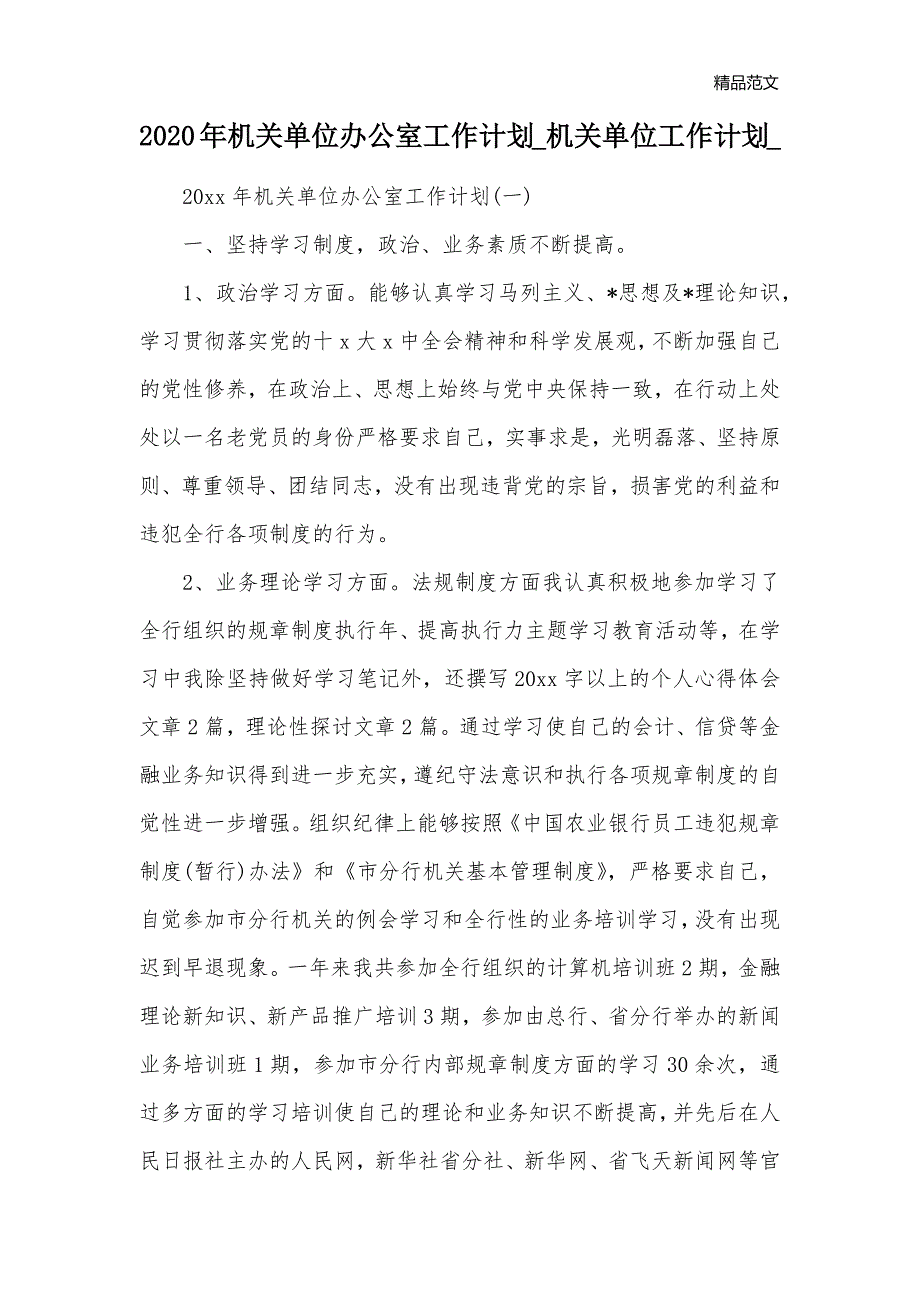 精品范文
2020年机关单位办公室工作计划_机关单位工作计划_
20xx年机关单位办公室工作计划(一)
一、坚持学习制度，政治、业务素质不断提高。
1、政治学习方面。能够认真学习马列主义、*思想及*理论知识，
学习贯彻落实党的十x大x中全会精神和科学发展观，不断加强自己
的党性修养，在政治上、思想上始终与党中央保持一致，在行动上处
处以一名老党员的身份严格要求自己，实事求是，光明磊落、坚持原
则、尊重领导、团结同志，没有出现违背党的宗旨，损害党的利益和
违犯全行各项制度的行为。
2、业务理论学习方面。法规制度方面我认真积极地参加学习了
全行组织的规章制度执行年、提高执行力主题学习教育活动等，在学
习中我除坚持做好学习笔记外，还撰写20xx字以上的个人心得体会
文章2篇，理论性探讨文章2篇。通过学习使自己的会计、信贷等金
融业务知识得到进一步充实，遵纪守法意识和执行各项规章制度的自
觉性进一步增强。组织纪律上能够按照《中国农业银行员工违犯规章
制度(暂行)办法》和《市分行机关基本管理制度》，严格要求自己，
自觉参加市分行机关的例会学习和全行性的业务培训学习，没有出现
迟到早退现象。一年来我共参加全行组织的计算机培训班2期，金融
理论新知识、新产品推广培训3期，参加由总行、省分行举办的新闻
业务培训班1期，参加市分行内部规章制度方面的学习30余次，通
过多方面的学习培训使自己的理论和业务知识不断提高，并先后在人
民日报社主办的人民网，新华社省分社、新华网、省飞天新闻网等官